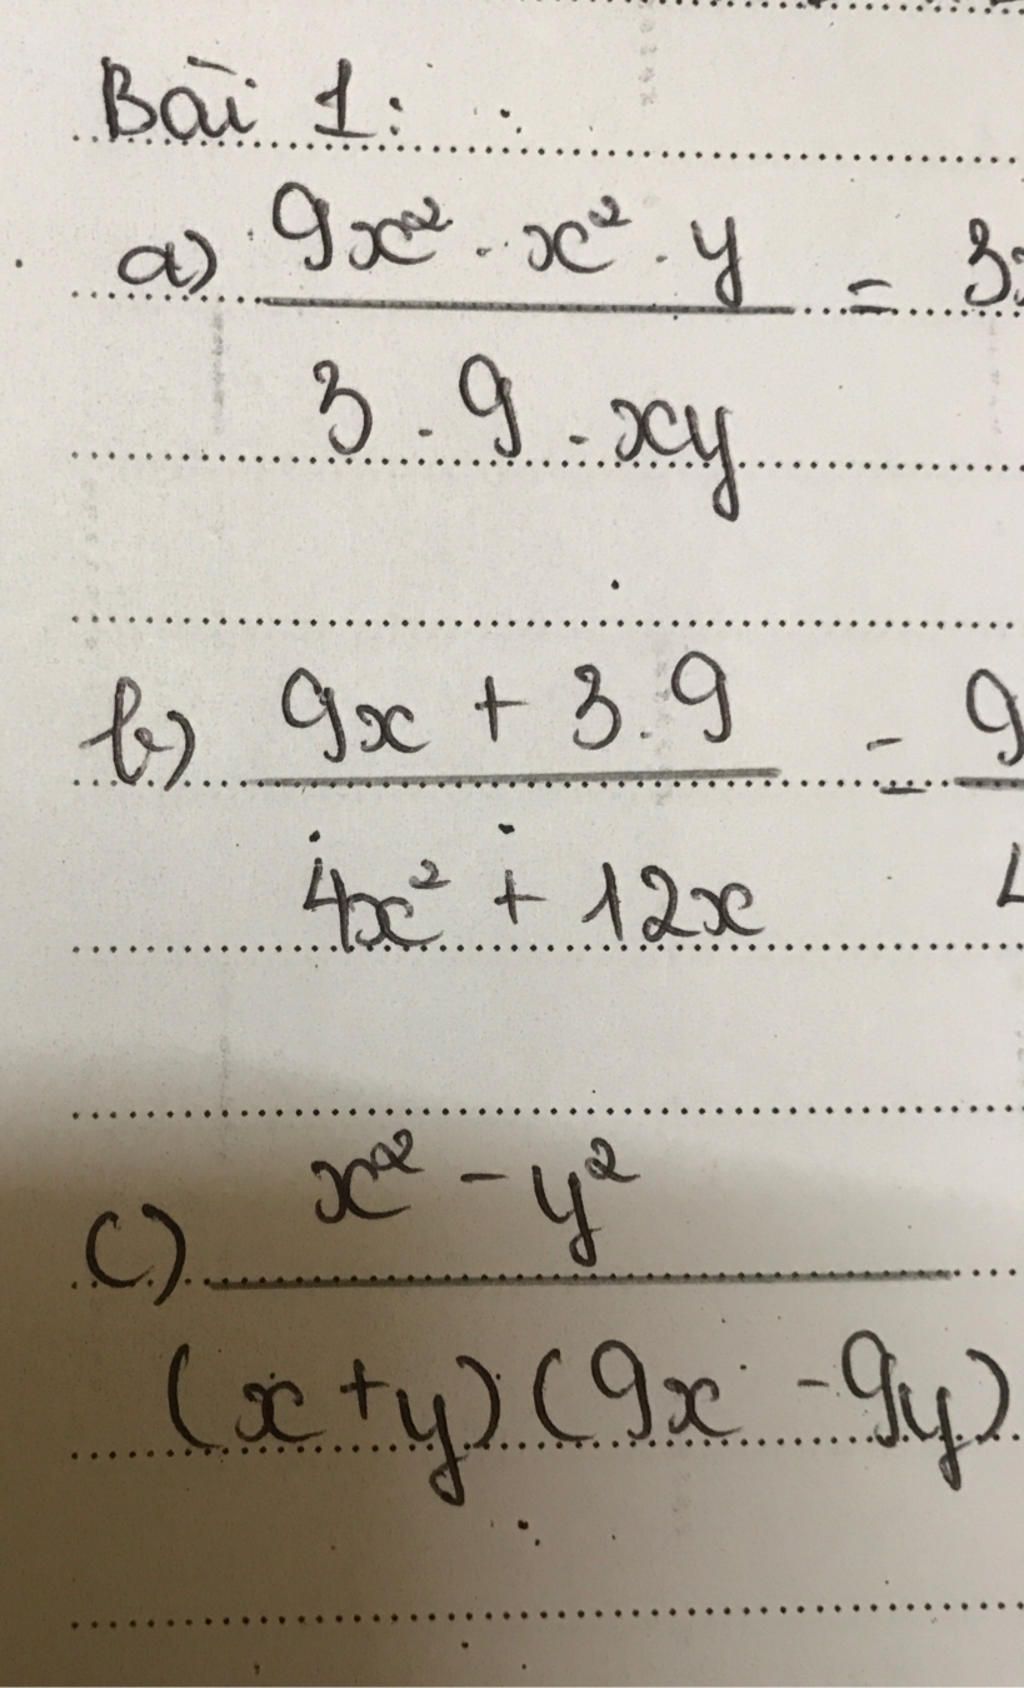 Bài 1:
a) 9x² . x² . y = 3x
3 . 9 . xy
b) 9x + 3.9 = 9
4x² + 12x
c) x² - y²
(x+y)(9x - 9y)